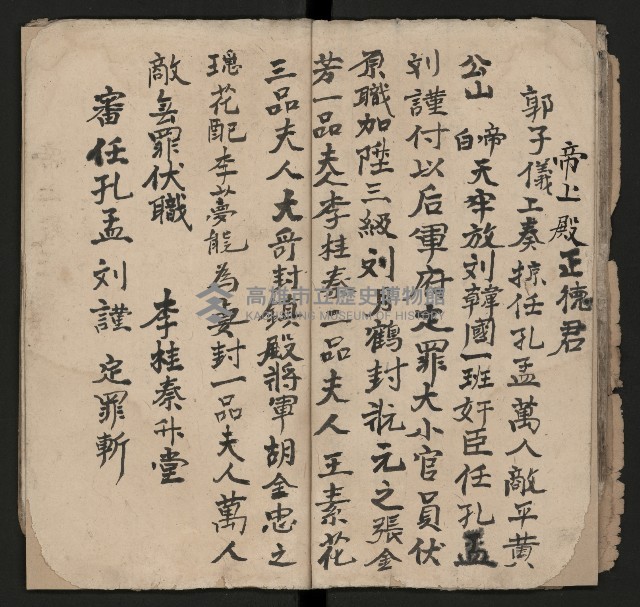 帝上殿 正德君
郭子儀上奏掠任孔孟萬人敵平黃
公山 帝白 天牢放刘韓國一班奸臣任孔孟
刘謹付以后軍府定罪大小官員伏
原職加陞三級刘 鶴封狀元之張金
芳一品夫人李桂秦一品夫人 王素花
三品夫人大哥封鎮殿將軍胡金忠之
花配李夢能為妻封一品夫人萬人
敵無罪伏職 李桂秦升堂
審任孔孟 刘謹 定罪斬
高雄市立歷史博物館
KAOHSIUNG MUSEUM OF HISTORY